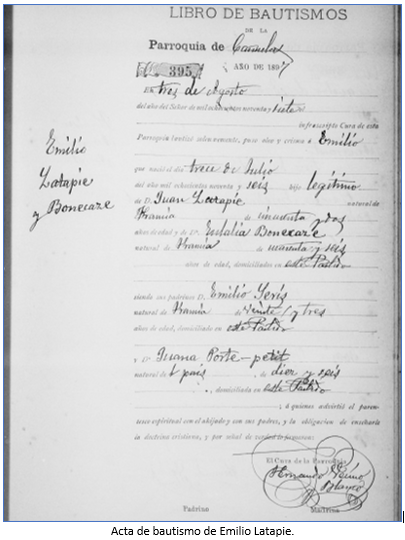 LIBRO DE BAUTISMOS
DE LA
Parroquia de Cañuelas
395 AÑO DE 1897
En tres de Agosto
del año del Señor de mil ochocientos noventa y siete
infrascripto Cura de esta
Parroquia bauticé solemnemente, puse oleo y crisma á Emilio
que nació el día trece de Julio
del año mil ochocientos noventa y seis hijo legítimo
de D. Juan Latapie natural de
Francia de cincuenta y dos
años de edad y de Dª. Eulalia Bonecaze
natural de Francia de cuarenta y seis
años de edad, domiciliados en este Partido
siendo sus padrinos D. Emilio Seris
natural de Francia de veinte y tres
años de edad, domiciliado en este Partido
y Dª. Juana Porte-petit
natural del pais de diez y seis
, domiciliada en este Partido
, á quienes advirtió el paren-
tesco espiritual con el ahijado y con sus padres, y la obligacion de enseñarle
la doctrina cristiana, y por señal de verdad lo firmamos:
El Cura de la Parroquia
Fernando
Blanco
Padrino Madrina
Emilio
Latapie
y Bonecaze
Acta de bautismo de Emilio Latapie.